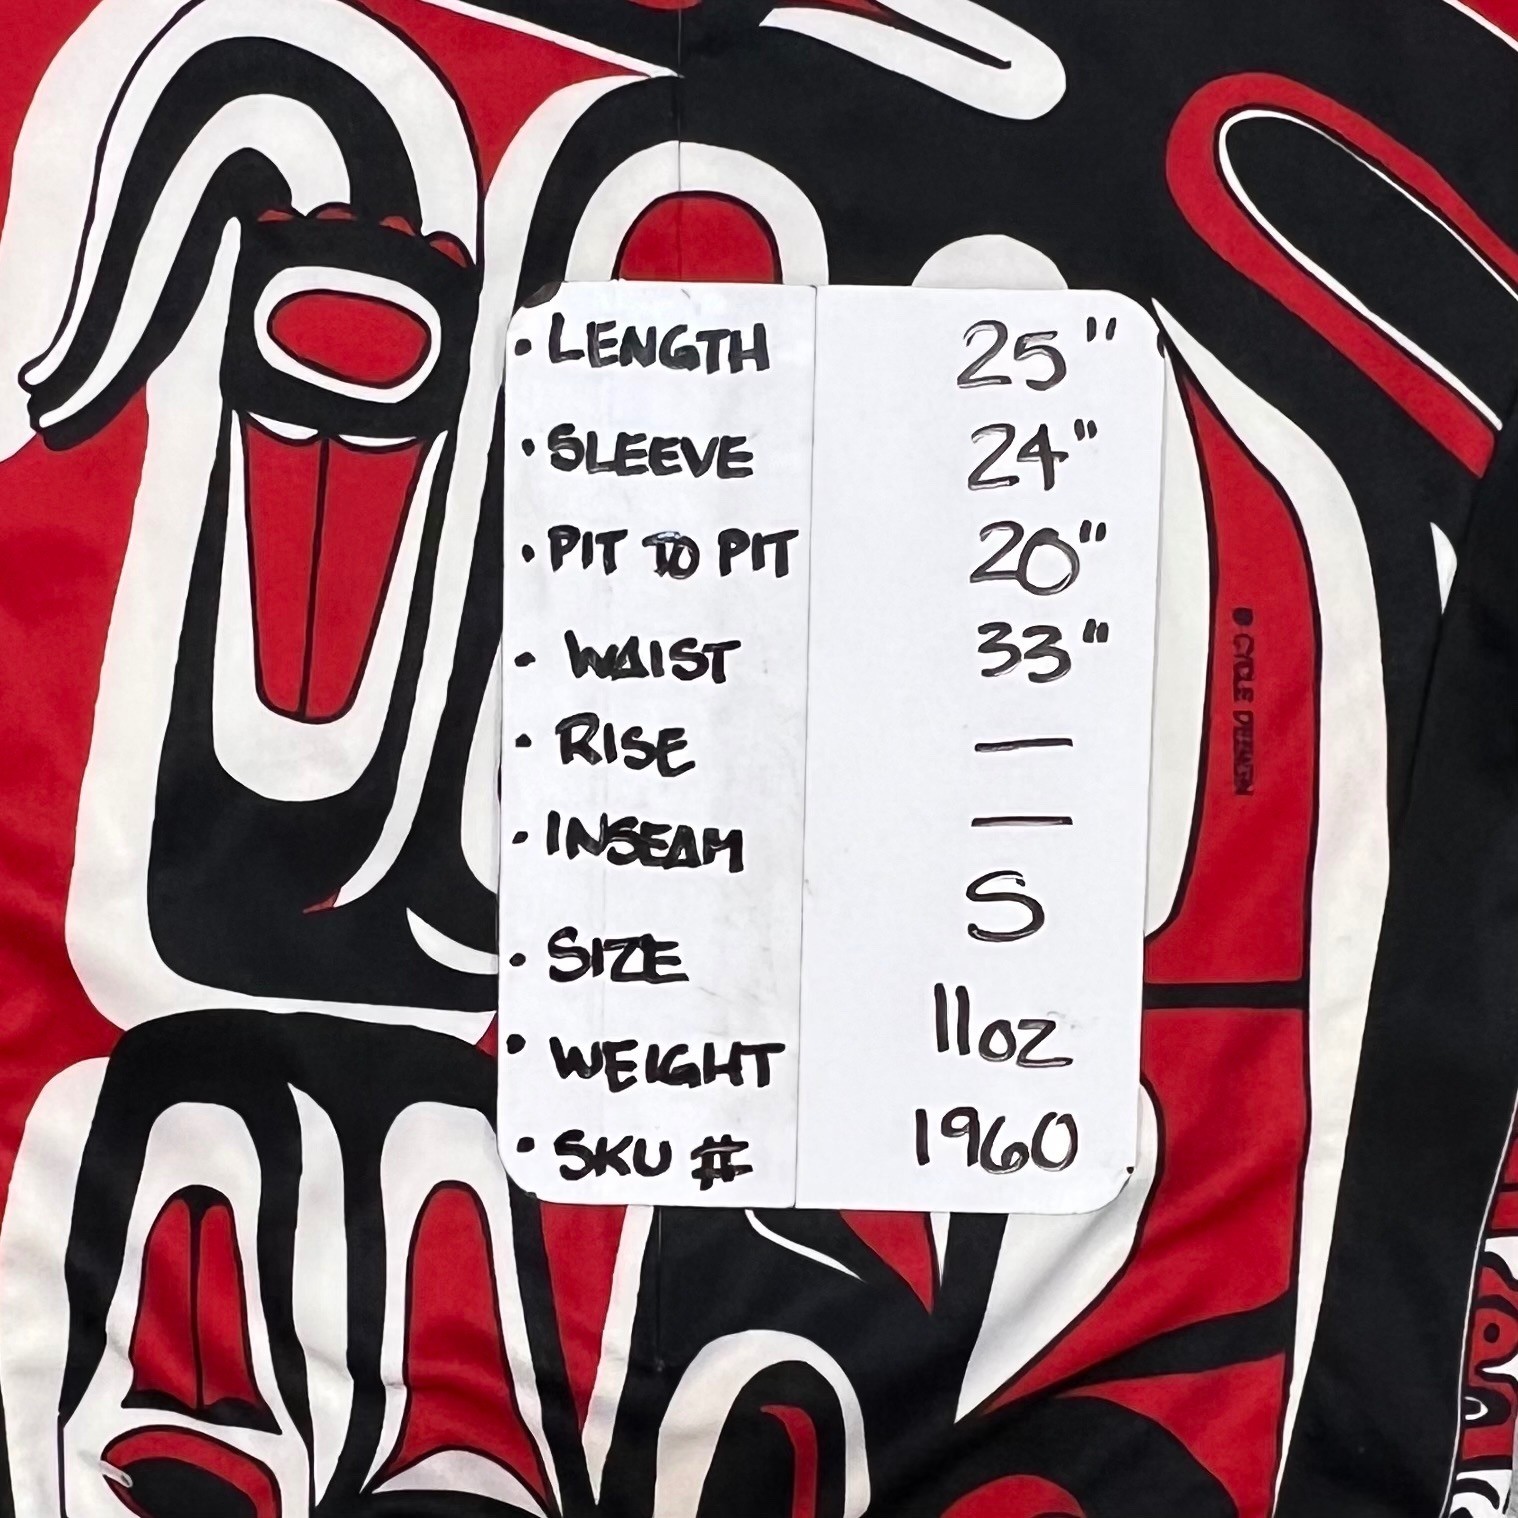 • LENGTH 25"
• SLEEVE 24"
• PIT TO PIT 20"
• WAIST 33"
• RISE —
• INSEAM —
• SIZE S
• WEIGHT 11oz
• SKU # 1960
© CYCLE DESIGN